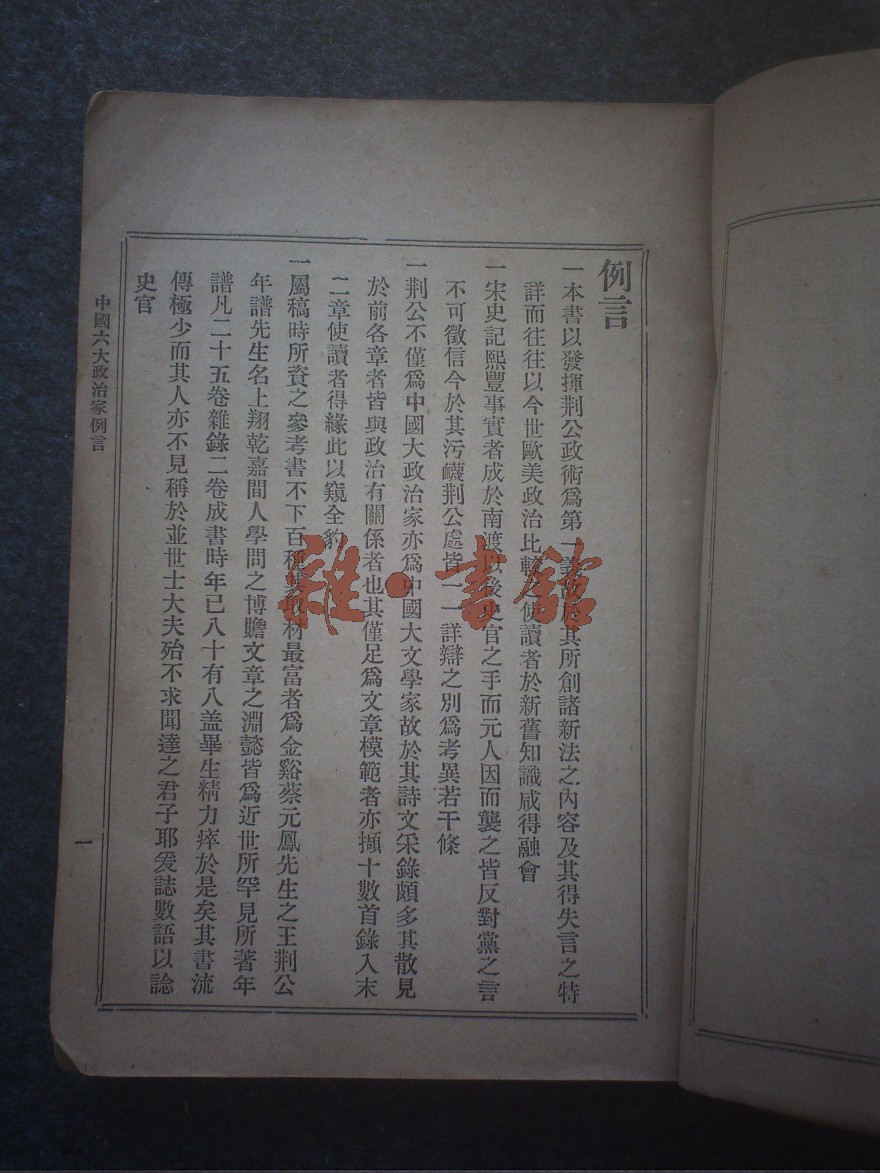 例言
一本書以發揮荆公政術爲第一義故於其所創諸新法之內容及其得失言之特
詳而往往以今世歐美政治比較之使讀者於新舊知識咸得融會
一宋史記熙豐事實者成於南渡以後史官之手而元人因而襲之皆反對黨之言
不可徵信今於其污衊荆公處皆一一詳辯之別爲考異若干條
一荆公不僅爲中國大政治家亦爲中國大文學家故於其詩文采錄頗多其散見
於前各章者皆與政治有關係者也其僅足爲文章模範者亦擷十數首錄入末
二章使讀者得緣此以窺全豹
一屬稿時所資之參考書不下百種其取材最富者爲金谿蔡元鳳先生之王荆公
年譜先生名上翔乾嘉間人學問之博贍文章之淵懿皆爲近世所罕見所著年
譜凡二十五卷雜錄二卷成書時年已八十有八盖畢生精力瘁於是矣其書流
傳極少而其人亦不見稱於並世士大夫殆不求聞達之君子耶爰誌數語以諗
史官
中國六大政治家例言
一
雜·書館